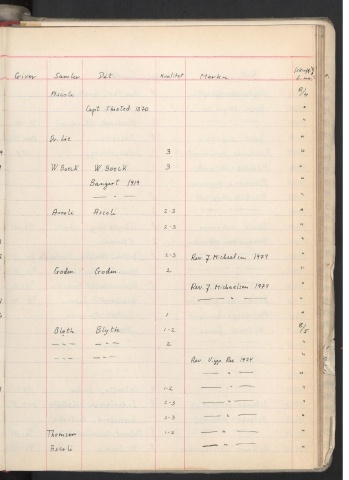 Giver Samler Det. Kvalitet Mærker
Ascoli 8/4
Capt. Thisted 1870
Dr. Lit
3
W. Boeck W. Boeck 3
Bangert 1919
— " —
Ascoli Ascoli 2-3
2-3
2-3 Rev. J. Michaelsen 1979
Godm. Godm. 2
Rev. J. Michaelsen 1979
— " —
1
Blyth Blyth 1-2 8/5
— " — — " — 2
— " — — " —
Rev. 1924
— " —
1-2 — " —
2-3 — " —
2-3 — " —
Thomsen 1-2 — " —
Ascoli — " —